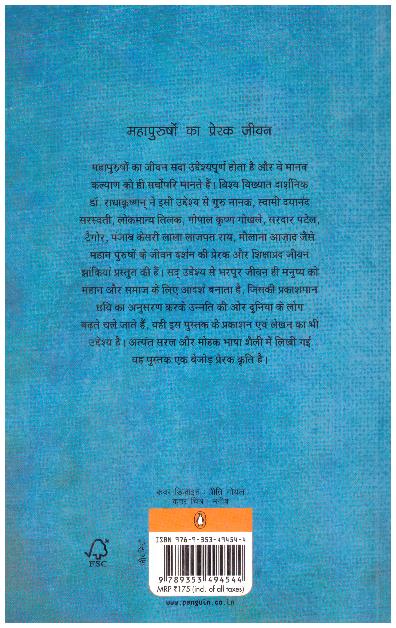 महापुरुषों का प्रेरक जीवन
महापुरुषों का जीवन सदा उद्देश्यपूर्ण होता है और वे मानव
कल्याण को ही सर्वोपरि मानते हैं। विश्व विख्यात दार्शनिक
डॉ. राधाकृष्णन् ने इसी उद्देश्य से गुरु नानक, स्वामी दयानंद
सरस्वती, लोकमान्य तिलक, गोपाल कृष्ण गोखले, सरदार पटेल,
टैगोर, पंजाब केसरी लाला लाजपत राय, मौलाना आज़ाद जैसे
महान पुरुषों के जीवन दर्शन की प्रेरक और शिक्षाप्रद जीवन
झांकियां प्रस्तुत की हैं। सद् उद्देश्य से भरपूर जीवन ही मनुष्य को
महान और समाज के लिए आदर्श बनाता है, जिसकी प्रकाशमान
छवि का अनुसरण करके उन्नति की ओर दुनिया के लोग
बढ़ते चले जाते हैं, वही इस पुस्तक के प्रकाशन एवं लेखन का भी
उद्देश्य है। अत्यंत सरल और मोहक भाषा शैली में लिखी गई
यह पुस्तक एक बेजोड़ प्रेरक कृति है।
कवर डिज़ाइन : प्रीति गोयल
कवर चित्र :
ISBN 978-9-353-49454-4
FSC
9 789353 494544
MRP ₹175 (incl. of all taxes)
www.penguin.co.in